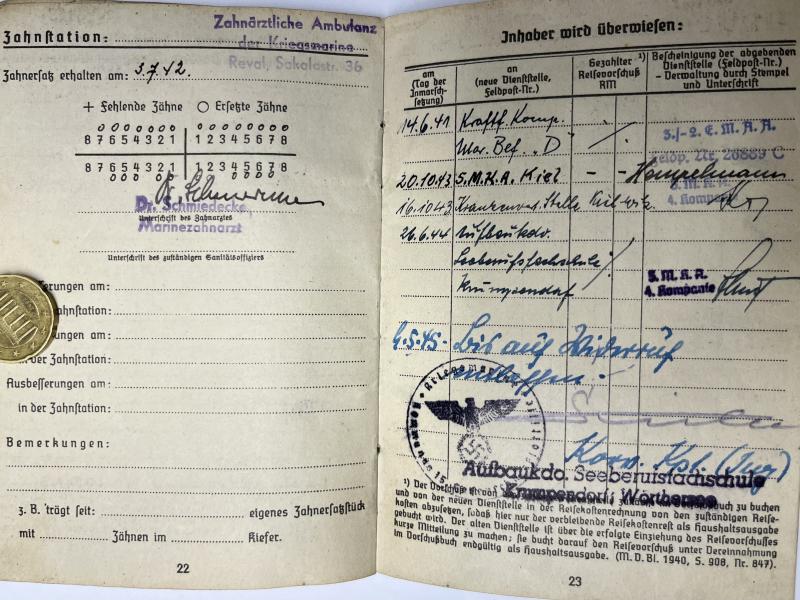 Zahnstation:
Zahnärztliche Ambulanz
der Kriegsmarine
Reval, Sakalastr. 36
Zahnersatz erhalten am: 3.7.42.
+ Fehlende Zähne O Ersetzte Zähne
8 7 6 5 4 3 2 1 1 2 3 4 5 6 7 8
8 7 6 5 4 3 2 1 1 2 3 4 5 6 7 8
Dr. Schmiedecke,
Unterschrift des Zahnarztes
Marinezahnarzt
Unterschrift des zuständigen Sanitätsoffiziers
serungen am:
Zahnstation:
serungen am:
in der Zahnstation:
Ausbesserungen am:
in der Zahnstation:
Bemerkungen:
z. B. trägt seit: eigenes Zahnersatzstück
mit Zähnen im Kiefer.
22
Inhaber wird überwiesen:
am (Tag der Inmarsch-setzung)
an (neue Dienststelle, Feldpost-Nr.)
Gezahlter Reisevorschuß ¹) RM
Bescheinigung der abgebenden Dienststelle (Feldpost-Nr.) – Verwaltung durch Stempel und Unterschrift
14.6.41 Kraftf. Komp.
Mar. Bef. "D"
3./-2. E. M. A. A.
Feldp. Nr. 26889 C
20.10.43 S.M.A.A. Kiel - - Hempelmann
16.10.43 Kiel-Wik
4. Kompanie
26.6.44 Aufbaukdo.
Seeberufsfachschule
Krumpendorf
S. M. A. A.
4. Kompanie
9.5.45- Bis auf Widerruf
entlassen -
Korv. Kpt. (Ing)
Aufbaukdo. Seeberufsfachschule
Krumpendorf/Wörthersee
¹) Der Vorschuß ist von zu buchen
und von der neuen Dienststelle in der Reisekostenrechnung von den zuständigen Reise-
kosten abzusetzen, sodaß hier nur der verbleibende Reisekostenrest als Haushaltsausgabe
gebucht wird. Der alten Dienststelle ist über die erfolgte Einziehung des Reisevorschusses
kurze Mitteilung zu machen; sie bucht darauf den Reisevorschuß unter Vereinnahmung
im Vorschußbuch endgültig als Haushaltsausgabe. (M. D. Bl. 1940, S. 908, Nr. 847).
23